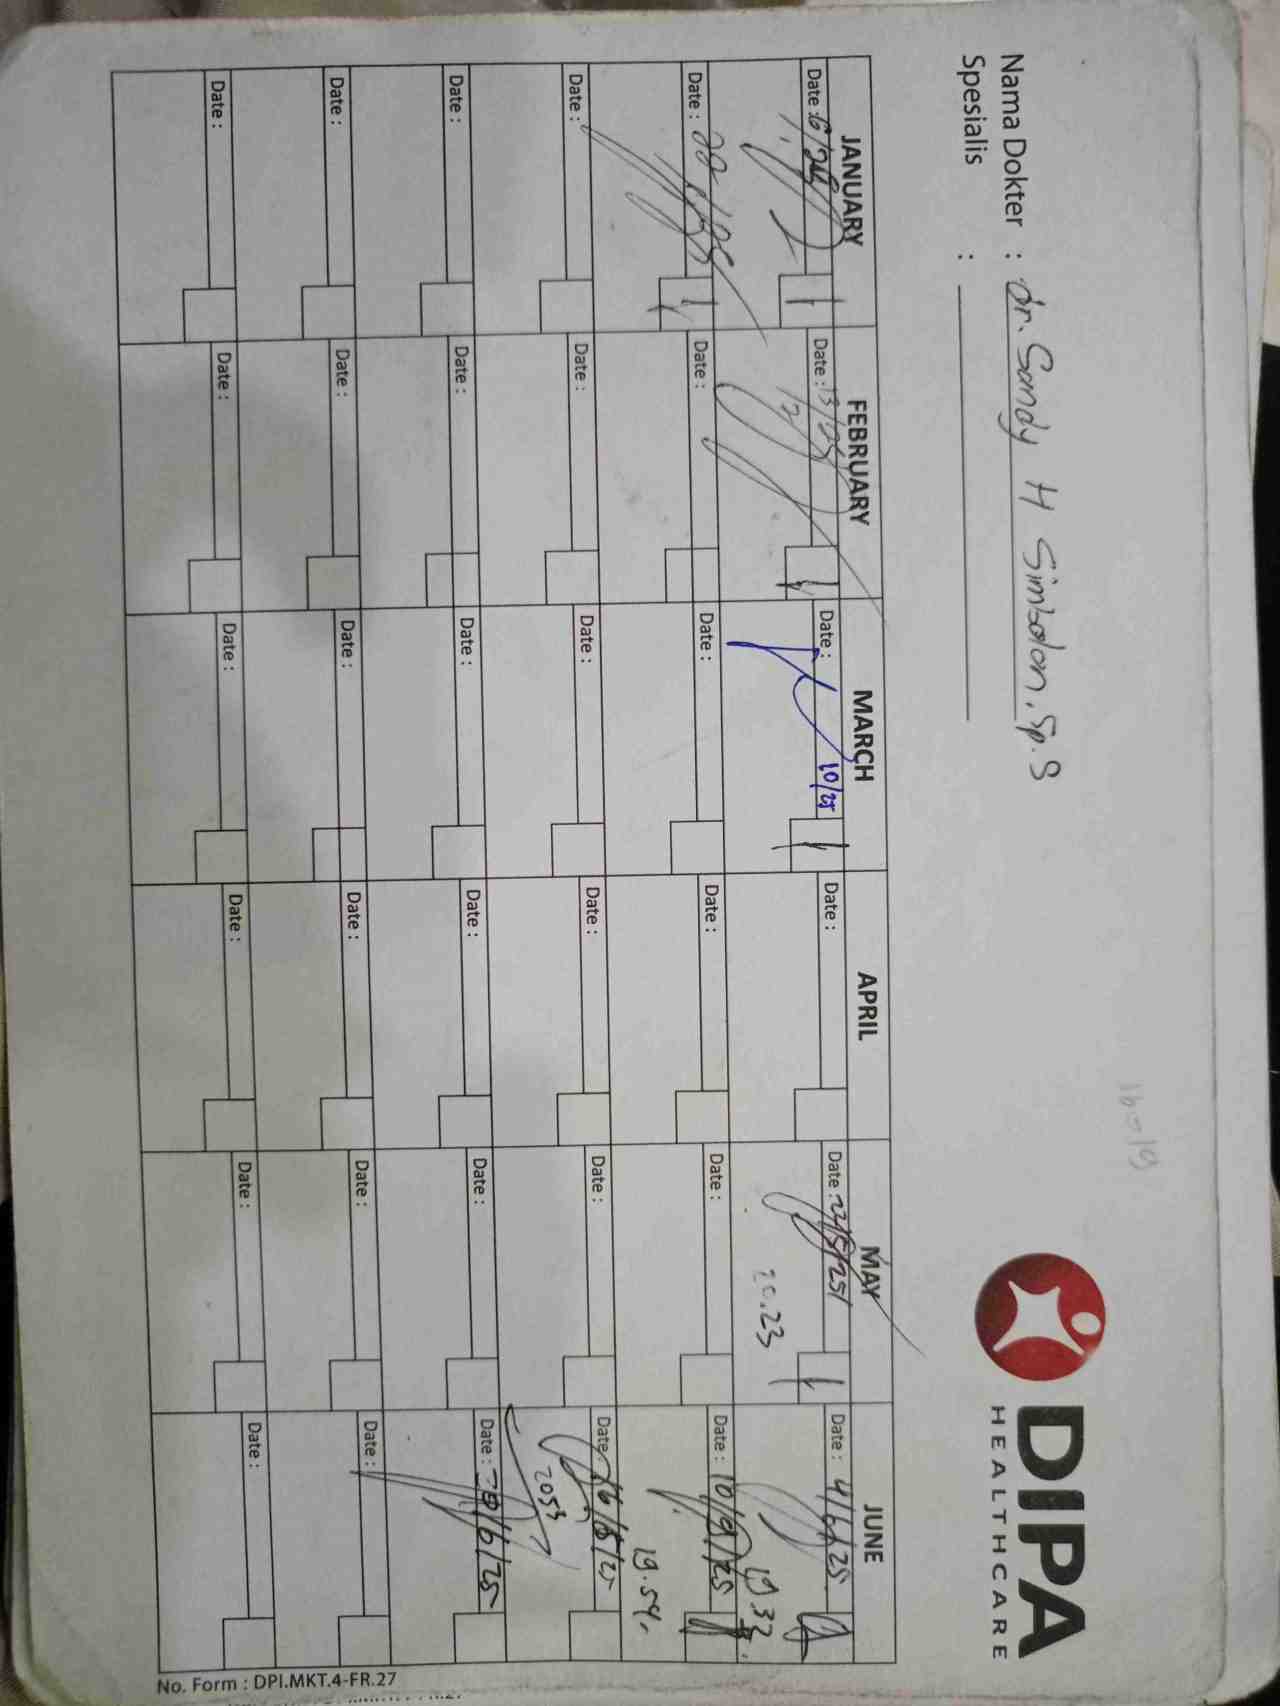 DIPA
HEALTHCARE
Nama Dokter : dr. Sandy H Simbolon, Sp.S
Spesialis :
JANUARY FEBRUARY MARCH APRIL MAY JUNE
Date : Date : 13/25 Date : 10/25 Date : Date : 22/5/25 Date : 4/6/25
2
20.23 19.32
Date : Date : Date : Date : Date : Date : 10/ /25
19.54
Date : Date : Date : Date : Date : Date :
2053
Date : Date : Date : Date : Date : Date : /6/25
Date : Date : Date : Date : Date : Date :
Date : Date : Date : Date : Date : Date :
No. Form : DPI.MKT.4-FR.27